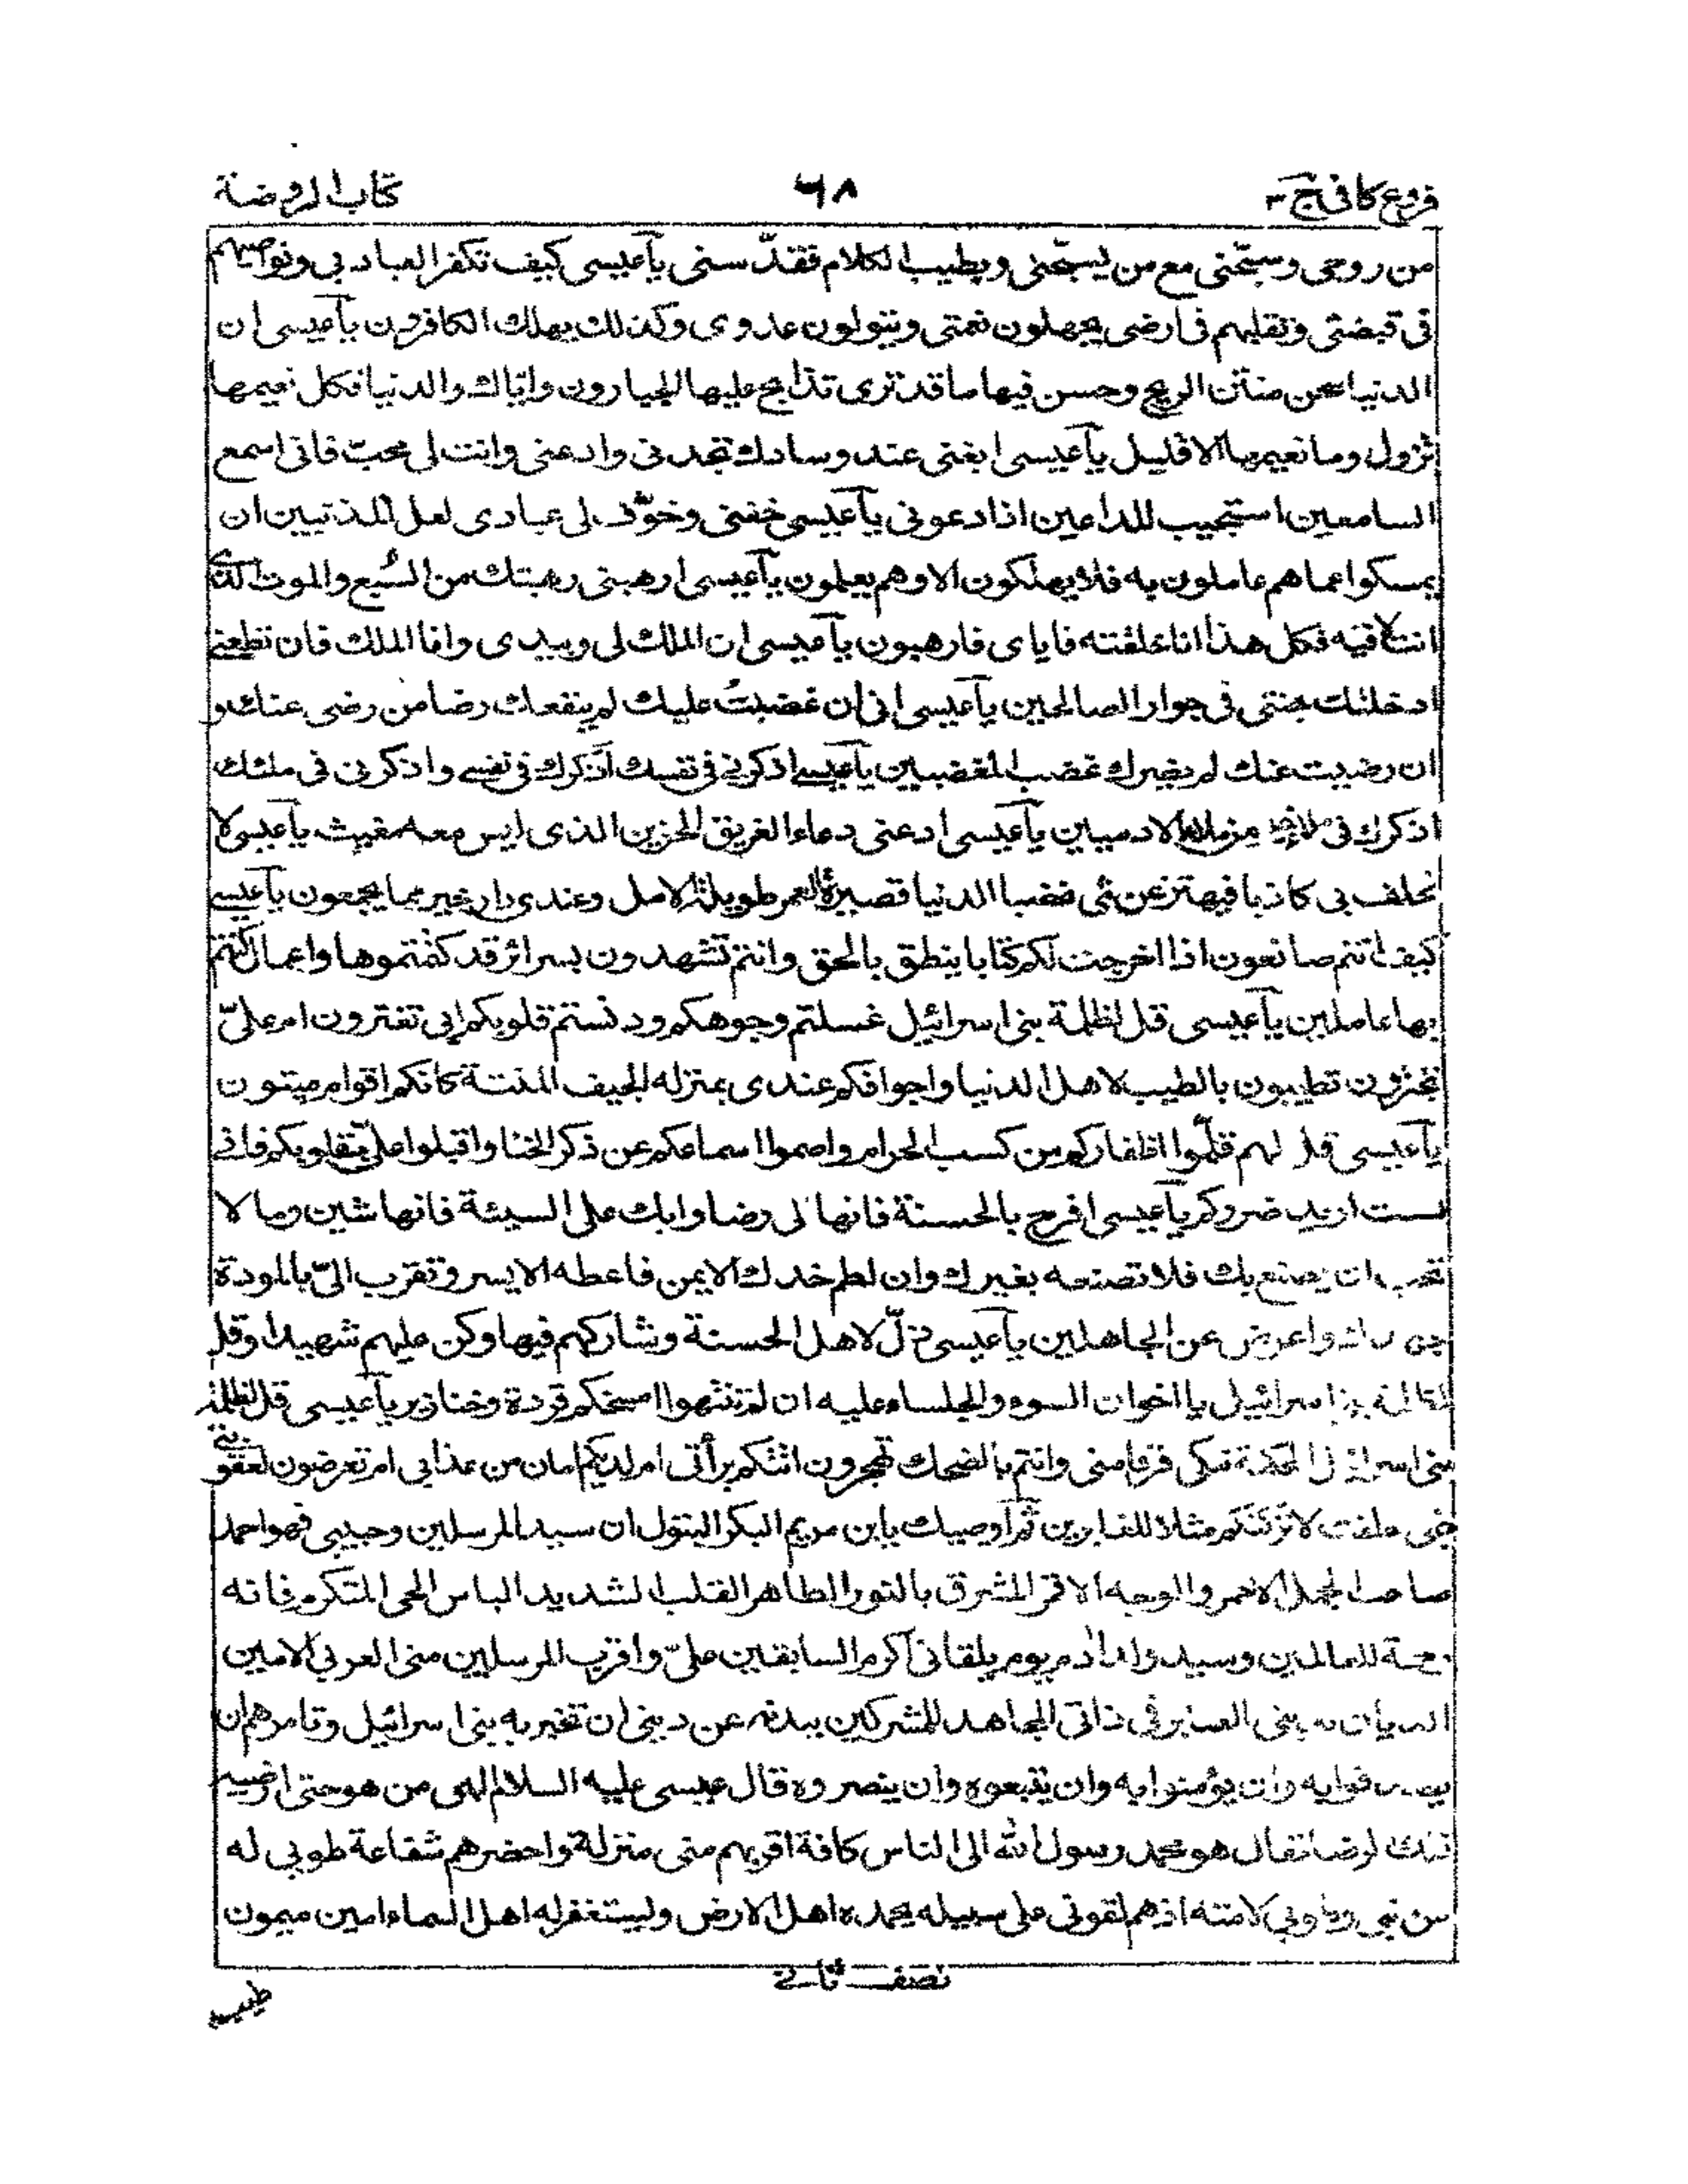 فروع كافى ج ٣
٦٨
كتاب الروضة
من روحى وسبّحنى مع من يسبّحنى وبطيب الكلام فقدّسنى يا عيسى كيف تكفر العباد بى ونواصيهم
فى قبضتى وتقلبهم فى ارضى يجهلون نعمتى ويتولون عدوى وكذلك يهلك الكافرون يا عيسى ان
الدنيا سجن منتن الريح وحسن فيها ما قد ترى تذابح عليها الجبارون واياك والدنيا فكل نعيمها
يزول وما نعيمها الا قليل يا عيسى ابغنى عند وسادك تجدنى وادعنى وانت لى محبّ فانى اسمع
السامعين استجيب للداعين اذا دعونى يا عيسى خفنى وخوّف بى عبادى لعل المذنبين ان
يمسكوا عما هم عاملون به فلا يهلكون الا وهم يعلمون يا عيسى ارهبنى رهبتك من السُبع والموت الذى
انت لاقيه فكل هذا انا خلقته فاياى فارهبون يا عيسى ان الملك لى وبيدى وانا الملك فان تطعنى
ادخلتك جنتى فى جوار الصالحين يا عيسى انى ان غضبتُ عليك لم ينفعك رضا من رضى عنك و
ان رضيت عنك لم يضرك غضب المغضبين يا عيسى اذكرنى فى نفسك اَذكرك فى نفسى واذكرنى فى ملئك
اذكرك فى ملاء خير من ملاء الادميين يا عيسى ادعنى دعاء الغريق الحزين الذى ليس معه مغيث يا عيسى لا
تحلف بى كاذبا فيهتز عرشى غضبا الدنيا قصيرة العمر طويلة الامل وعندى دار خير مما يجمعون يا عيسى
كيف انتم صانعون اذا اخرجت لكم كتابا ينطق بالحق وانتم تشهدون بسرائر قد كتمتموها واعمال كنتم
بها عاملين يا عيسى قل لظلمة بنى اسرائيل غسلتم وجوهكم ودنستم قلوبكم ابى تغترون ام علىّ
تجترؤن تطيبون بالطيب لاهل الدنيا واجوافكم عندى بمنزلة الجيف المنتنة كانكم اقوام ميتون
يا عيسى قل لهم قلّموا اظفاركم من كسب الحرام واصموا اسماعكم عن ذكر الخنا واقبلوا علىّ بقلوبكم فانى
لست اريد ضرركم يا عيسى افرح بالحسنة فانها لى رضا وابك على السيئة فانها شين وما لا
تحب ان يصنع بك فلا تصنعه بغيرك وان لطم خدك الايمن فاعطه الايسر وتقرب الىّ بالمودة
جهدك واعرض عن الجاهلين يا عيسى ذلّ لاهل الحسنة وشاركهم فيها وكن عليهم شهيدا وقل
لظلمة بنى اسرائيل يا اخوان السوء والجلساء عليه ان لم تنتهوا امسخكم قردة وخنازير يا عيسى قل لظلمة
بنى اسرائيل الحكمة تبكى فرقا منى وانتم بالضحك تهجرون اتتكم براءتى ام لديكم امان من عذابى ام تعرضون لعقوبتى
فبى حلفت لاتركنّكم مثلا للغابرين ثم اوصيك يا ابن مريم البكر البتول ان سيد المرسلين وحبيبى فهو احمد
صاحب الجمل الاحمر والوجه الاقمر المشرق بالنور الطاهر القلب الشديد الباس الحى المتكرم فانه
رحمة للعالمين وسيد ولد ادم يوم يلقانى اكرم السابقين علىّ واقرب المرسلين منى العربى الامين
الديان بدينى الصابر فى ذاتى المجاهد المشركين بيده عن دينى ان تخبر به بنى اسرائيل وتامرهم ان
يصدقوا به وان يؤمنوا به وان يتبعوه وان ينصروه قال عيسى عليه السلام الهى من هو حتى ارضيه
فلك الرضا فقال هو محمد رسول الله الى الناس كافة اقربهم منى منزلة واحضرهم شفاعة طوبى له
من نبى وطوبى لامته اذ هم لقونى على سبيله يحمده اهل الارض ويستغفر له اهل السماء امين ميمون
نصف ثانى
طيب